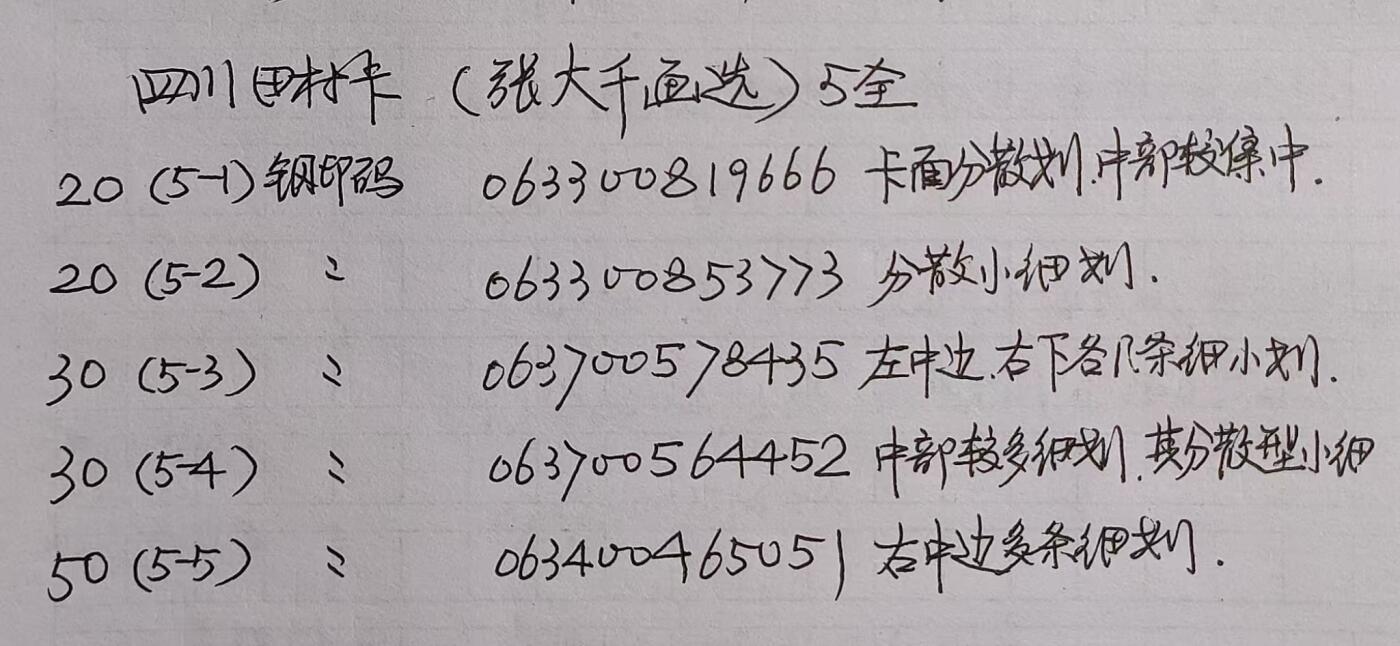 四川田村卡（张大千画选）5全
20（5-1）钢印码 063300819666 卡面分散划.中部较集中.
20（5-2） 〃 063300853773 分散小细划.
30（5-3） 〃 063700578435 左中边.右下各几条细小划.
30（5-4） 〃 063700564452 中部较多细划.其分散型小细
50（5-5） 〃 063400465051 右中边多条细划.